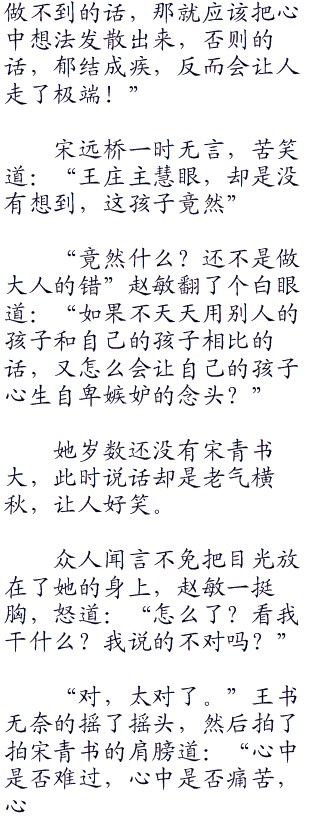 做不到的话，那就应该把心
中想法发散出来，否则的
话，郁结成疾，反而会让人
走了极端！”
宋远桥一时无言，苦笑
道：“王庄主慧眼，却是没
有想到，这孩子竟然”
“竟然什么？还不是做
大人的错”赵敏翻了个白眼
道：“如果不天天用别人的
孩子和自己的孩子相比的
话，又怎么会让自己的孩子
心生自卑嫉妒的念头？”
她岁数还没有宋青书
大，此时说话却是老气横
秋，让人好笑。
众人闻言不免把目光放
在了她的身上，赵敏一挺
胸，怒道：“怎么了？看我
干什么？我说的不对吗？”
“对，太对了。”王书
无奈的摇了摇头，然后拍了
拍宋青书的肩膀道：“心中
是否难过，心中是否痛苦，
心